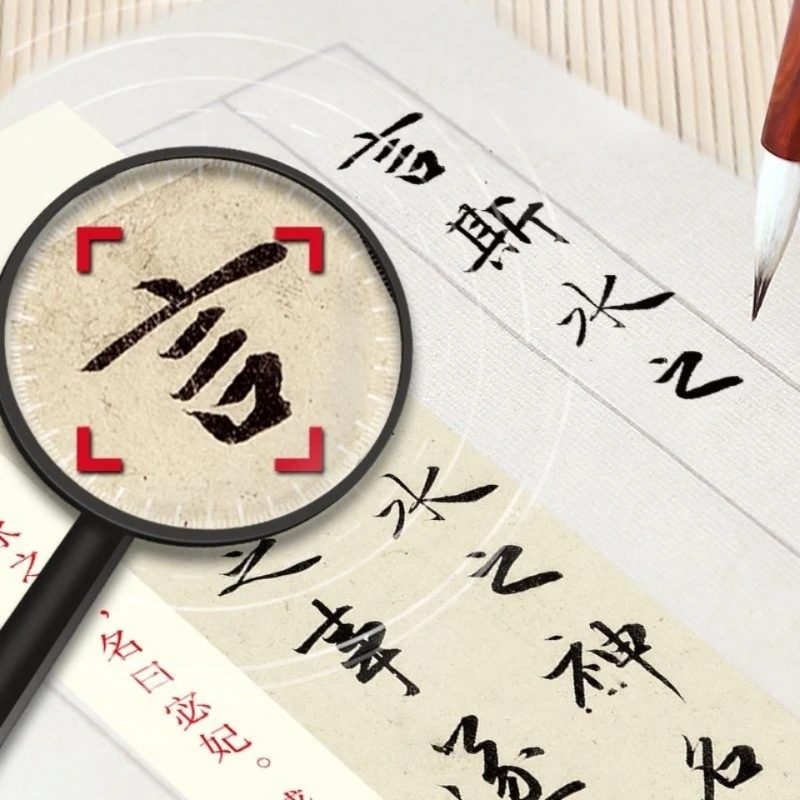 言斯水之
言
水之神名
之事遂
之，名曰宓妃。